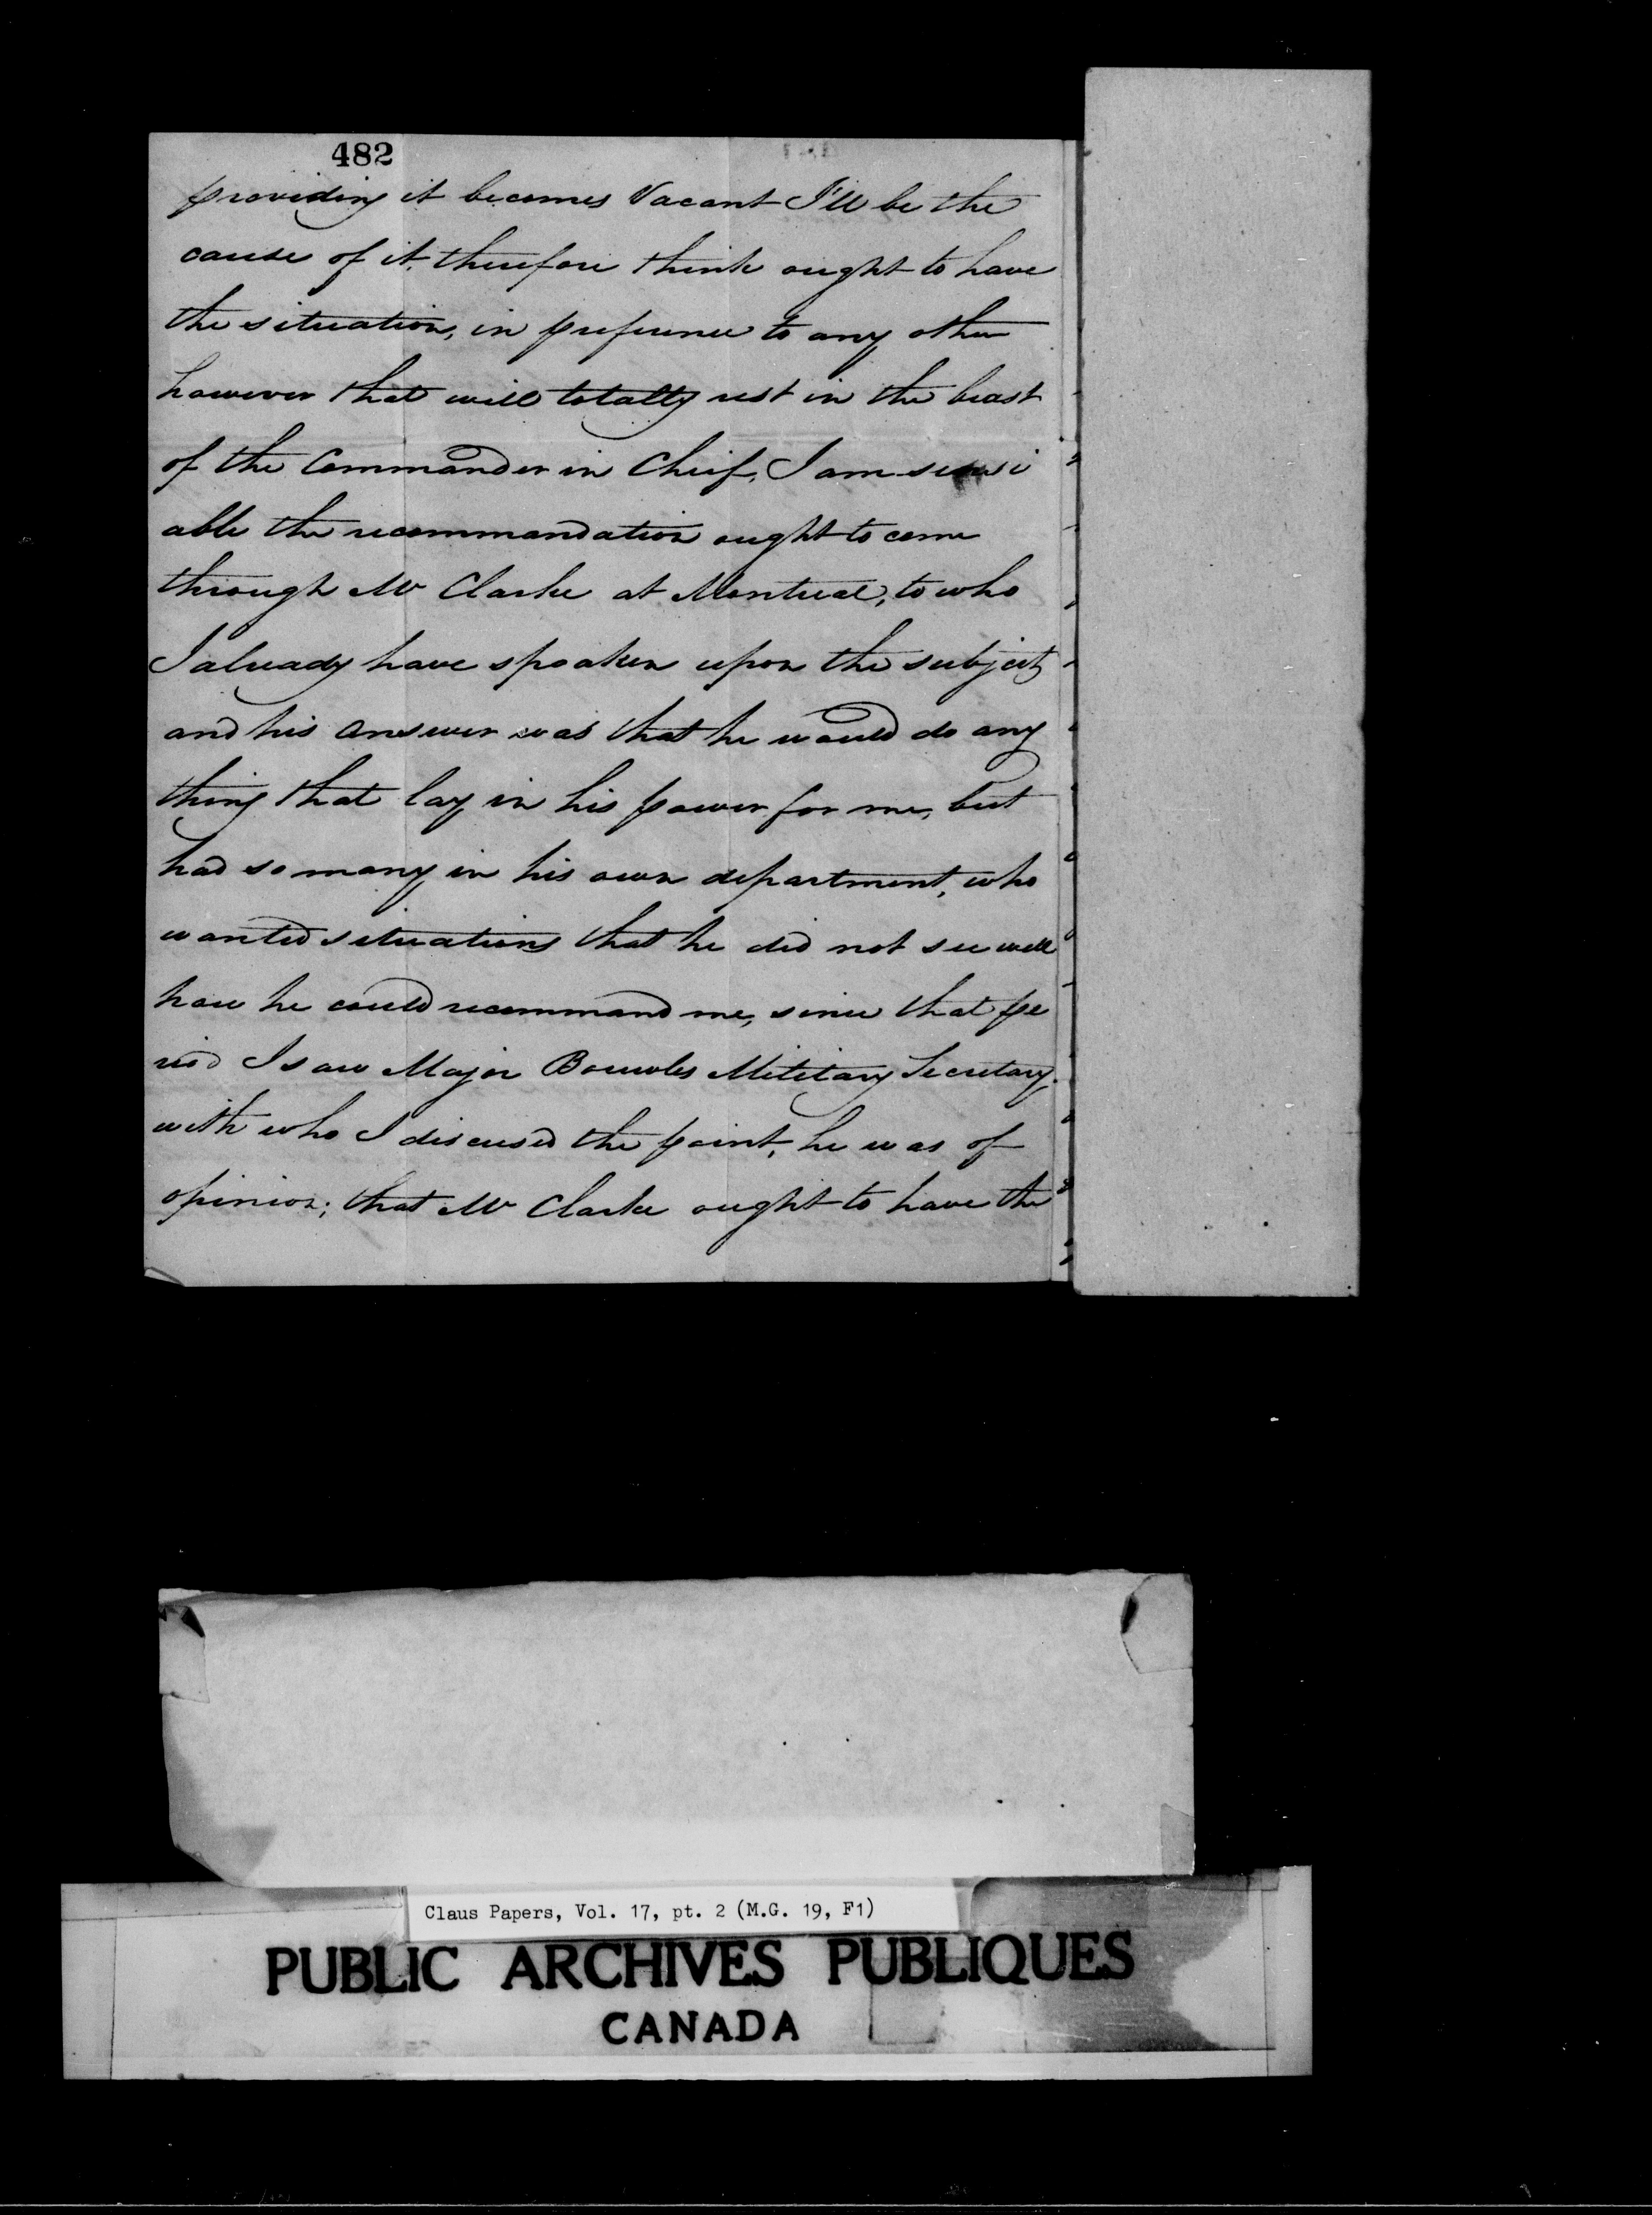 482
providing it becomes Vacant I'll be the
cause of it, therefore think ought to have
the situation, in preference to any other
however that will totally rest in the breast
of the Commander in Chief, I am sensi
able the recommandation ought to come
through Mr Clarke at Montreal, to who
I already have spoaken upon the subject
and his answer was that he would do any
thing that lay in his power for me, but
had so many in his own department, who
wanted situations that he did not see well
how he could recommand me, since that pe
riod I saw Major Bouwles Military Secretary,
with who I discused the point, he was of
opinion; that Mr Clarke ought to have the
Claus Papers, Vol. 17, pt. 2 (M.G. 19, F1)
PUBLIC ARCHIVES PUBLIQUES
CANADA